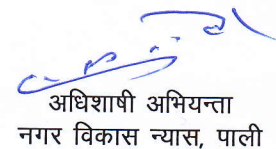 अधिशाषी अभियन्ता
नगर विकास न्यास, पाली